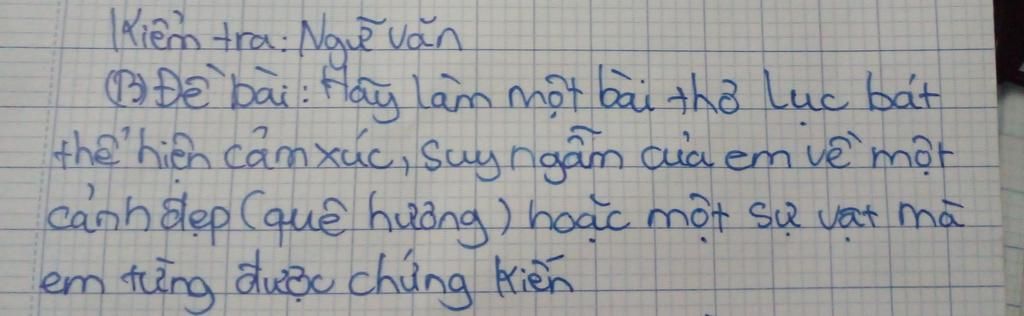 Kiểm tra: Ngữ văn
(B) Đề bài: Hãy làm một bài thơ lục bát
thể hiện cảm xúc, suy ngẫm của em về một
cảnh đẹp (quê hương) hoặc một sự vật mà
em từng được chứng kiến